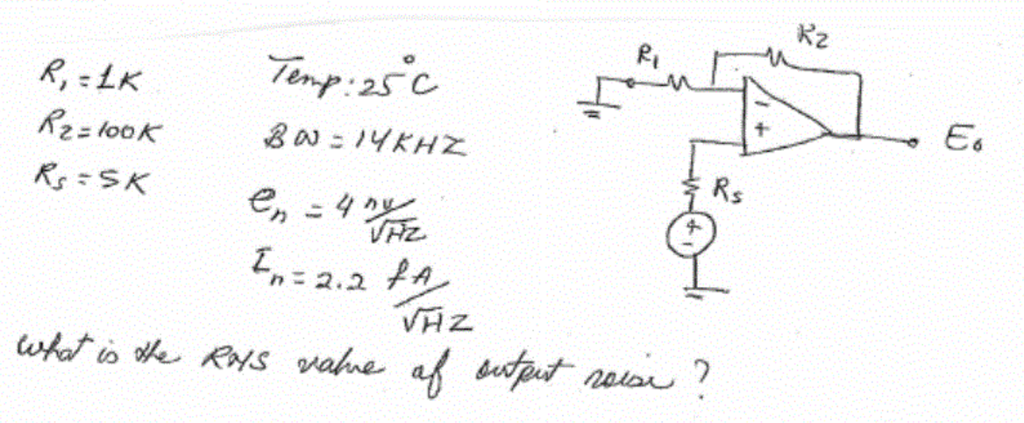 R₁ = 1K
R₂ = 100K
Rs = 5K
Temp: 25°C
BW = 14KHZ
en = 4 nv/√HZ
In = 2.2 fA/√HZ
R₁
R₂
-
+
Rs
+
-
Eo
what is the RMS value of output noise ?